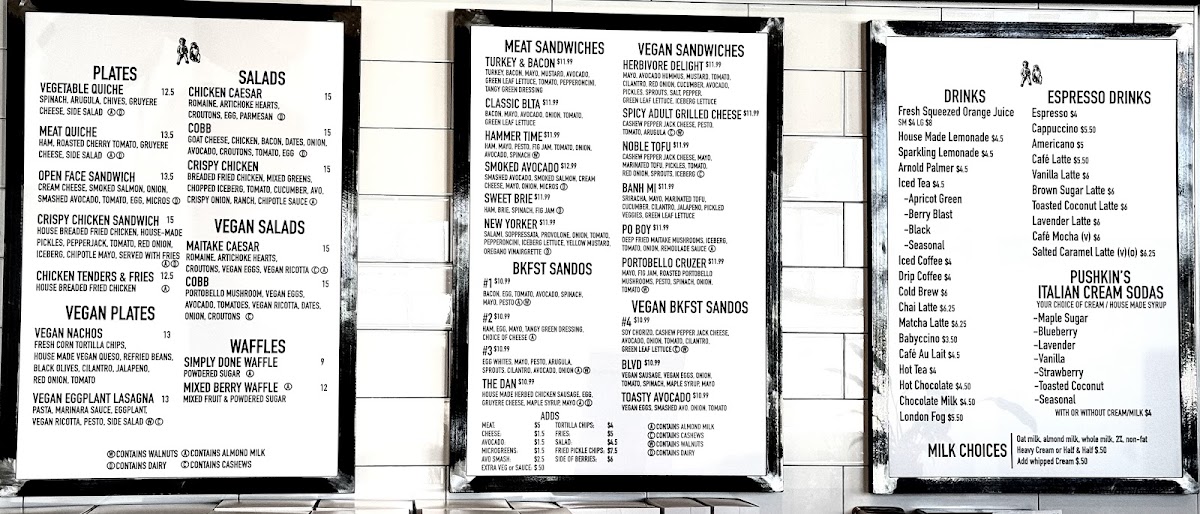 PLATES
VEGETABLE QUICHE 12.5
SPINACH, ARUGULA, CHIVES, GRUYERE
CHEESE, SIDE SALAD Ⓐ Ⓓ
MEAT QUICHE 13.5
HAM, ROASTED CHERRY TOMATO, GRUYERE
CHEESE, SIDE SALAD Ⓐ Ⓓ
OPEN FACE SANDWICH 13.5
CREAM CHEESE, SMOKED SALMON, ONION,
SMASHED AVOCADO, TOMATO, EGG, MICROS Ⓓ
CRISPY CHICKEN SANDWICH 15
HOUSE BREADED FRIED CHICKEN, HOUSE-MADE
PICKLES, PEPPERJACK, TOMATO, RED ONION,
ICEBERG, CHIPOTLE MAYO, SERVED WITH FRIES
Ⓐ Ⓓ
CHICKEN TENDERS & FRIES 12.5
HOUSE BREADED FRIED CHICKEN Ⓐ
VEGAN PLATES
VEGAN NACHOS 13
FRESH CORN TORTILLA CHIPS,
HOUSE MADE VEGAN QUESO, REFRIED BEANS,
BLACK OLIVES, CILANTRO, JALAPENO,
RED ONION, TOMATO
VEGAN EGGPLANT LASAGNA 13
PASTA, MARINARA SAUCE, EGGPLANT,
VEGAN RICOTTA, PESTO, SIDE SALAD Ⓦ Ⓒ
SALADS
CHICKEN CAESAR 15
ROMAINE, ARTICHOKE HEARTS,
CROUTONS, EGG, PARMESAN Ⓓ
COBB 15
GOAT CHEESE, CHICKEN, BACON, DATES, ONION,
AVOCADO, CROUTONS, TOMATO, EGG Ⓓ
CRISPY CHICKEN 15
BREADED FRIED CHICKEN, MIXED GREENS,
CHOPPED ICEBERG, TOMATO, CUCUMBER, AVO,
CRISPY ONION, RANCH, CHIPOTLE SAUCE Ⓐ
VEGAN SALADS
MAITAKE CAESAR 15
ROMAINE, ARTICHOKE HEARTS,
CROUTONS, VEGAN EGGS, VEGAN RICOTTA Ⓒ Ⓐ
COBB 15
PORTOBELLO MUSHROOM, VEGAN EGGS,
AVOCADO, TOMATOES, VEGAN RICOTTA, DATES,
ONION, CROUTONS Ⓒ
WAFFLES
SIMPLY DONE WAFFLE 9
POWDERED SUGAR Ⓐ
MIXED BERRY WAFFLE Ⓐ 12
MIXED FRUIT & POWDERED SUGAR
Ⓦ CONTAINS WALNUTS Ⓐ CONTAINS ALMOND MILK
Ⓓ CONTAINS DAIRY Ⓒ CONTAINS CASHEWS
MEAT SANDWICHES
TURKEY & BACON $11.99
TURKEY, BACON, MAYO, MUSTARD, AVOCADO,
GREEN LEAF LETTUCE, TOMATO, PEPPERONCINI,
TANGY GREEN DRESSING
CLASSIC BLTA $11.99
BACON, MAYO, AVOCADO, ONION, TOMATO,
GREEN LEAF LETTUCE
HAMMER TIME $11.99
HAM, MAYO, PESTO, FIG JAM, TOMATO, ONION,
AVOCADO, SPINACH Ⓦ
SMOKED AVOCADO $12.99
SMASHED AVOCADO, SMOKED SALMON, CREAM
CHEESE, MAYO, ONION, MICROS Ⓓ
SWEET BRIE $11.99
HAM, BRIE, SPINACH, FIG JAM Ⓓ
NEW YORKER $11.99
SALAMI, SOPPRESSATA, PROVOLONE, ONION, TOMATO,
PEPPERONCINI, ICEBERG LETTUCE, YELLOW MUSTARD,
OREGANO VINAIRGRETTE Ⓓ
BKFST SANDOS
#1 $10.99
BACON, EGG, TOMATO, AVOCADO, SPINACH,
MAYO, PESTO Ⓐ Ⓦ
#2 $10.99
HAM, EGG, MAYO, TANGY GREEN DRESSING,
CHOICE OF CHEESE Ⓐ
#3 $10.99
EGG WHITES, MAYO, PESTO, ARUGULA,
SPROUTS, CILANTRO, AVOCADO, ONION Ⓐ Ⓦ
THE DAN $10.99
HOUSE MADE HERBED CHICKEN SAUSAGE, EGG,
GRUYERE CHEESE, MAPLE SYRUP, MAYO Ⓐ Ⓓ
ADDS
MEAT: $5 TORTILLA CHIPS: $4
CHEESE: $1.5 FRIES: $5
AVOCADO: $1.5 SALAD: $4.5
MICROGREENS: $1.5 FRIED PICKLE CHIPS: $7.5
AVO SMASH: $2.5 SIDE OF BERRIES: $6
EXTRA VEG or SAUCE: $.50
VEGAN SANDWICHES
HERBIVORE DELIGHT $11.99
MAYO, AVOCADO HUMMUS, MUSTARD, TOMATO,
CILANTRO, RED ONION, CUCUMBER, AVOCADO,
PICKLES, SPROUTS, SALT, PEPPER,
GREEN LEAF LETTUCE, ICEBERG LETTUCE
SPICY ADULT GRILLED CHEESE $11.99
CASHEW PEPPER JACK CHEESE, PESTO,
TOMATO, ARUGULA Ⓒ Ⓦ
NOBLE TOFU $11.99
CASHEW PEPPER JACK CHEESE, MAYO,
MARINATED TOFU, PICKLES, TOMATO,
RED ONION, SPROUTS, ICEBERG Ⓒ
BANH MI $11.99
SRIRACHA, MAYO, MARINATED TOFU,
CUCUMBER, CILANTRO, JALAPENO, PICKLED
VEGGIES, GREEN LEAF LETTUCE
PO BOY $11.99
DEEP FRIED MAITAKE MUSHROOMS, ICEBERG,
TOMATO, ONION, REMOULADE SAUCE Ⓐ
PORTOBELLO CRUZER $11.99
MAYO, FIG JAM, ROASTED PORTOBELLO
MUSHROOMS, PESTO, SPINACH, ONION,
TOMATO Ⓦ
VEGAN BKFST SANDOS
#4 $10.99
SOY CHORIZO, CASHEW PEPPER JACK CHEESE,
AVOCADO, ONION, TOMATO, CILANTRO,
GREEN LEAF LETTUCE Ⓒ Ⓦ
BLVD $10.99
VEGAN SAUSAGE, VEGAN EGGS, ONION,
TOMATO, SPINACH, MAPLE SYRUP, MAYO
TOASTY AVOCADO $10.99
VEGAN EGGS, SMASHED AVO, ONION, TOMATO
Ⓐ CONTAINS ALMOND MILK
Ⓒ CONTAINS CASHEWS
Ⓦ CONTAINS WALNUTS
Ⓓ CONTAINS DAIRY
DRINKS
Fresh Squeezed Orange Juice
SM $4 LG $8
House Made Lemonade $4.5
Sparkling Lemonade $4.5
Arnold Palmer $4.5
Iced Tea $4.5
-Apricot Green
-Berry Blast
-Black
-Seasonal
Iced Coffee $4
Drip Coffee $4
Cold Brew $6
Chai Latte $6.25
Matcha Latte $6.25
Babyccino $3.50
Café Au Lait $4.5
Hot Tea $4
Hot Chocolate $4.50
Chocolate Milk $4.50
London Fog $5.50
ESPRESSO DRINKS
Espresso $4
Cappuccino $5.50
Americano $5
Café Latte $5.50
Vanilla Latte $6
Brown Sugar Latte $6
Toasted Coconut Latte $6
Lavender Latte $6
Café Mocha (v) $6
Salted Caramel Latte (v)(o) $6.25
PUSHKIN'S
ITALIAN CREAM SODAS
YOUR CHOICE OF CREAM / HOUSE MADE SYRUP
-Maple Sugar
-Blueberry
-Lavender
-Vanilla
-Strawberry
-Toasted Coconut
-Seasonal
WITH OR WITHOUT CREAM/MILK $4
MILK CHOICES
Oat milk, almond milk, whole milk, 2%, non-fat
Heavy Cream or Half & Half $.50
Add whipped Cream $.50